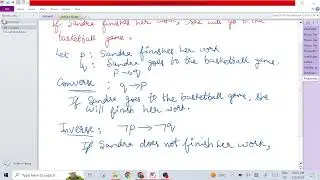 If Sandra finishes her work, she will go to the
basketball game.
Let p: Sandra finishes her work
q: Sandra goes to the basketball game.
p→q
Converse: q→p
If Sandra goes to the basketball game, she
will finish her work.
Inverse: ¬p → ¬q
If Sandra does not finish her work,